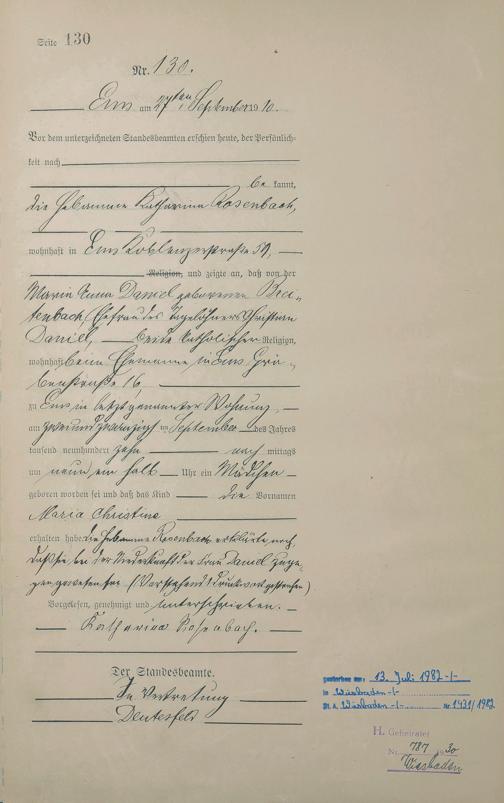 Seite 130
Nr. 130.
Ems am 27ten September 1910.
Vor dem unterzeichneten Standesbeamten erschien heute, der Persönlich-
keit nach
be kannt,
die Hebamme Katharina Rosenbach,
wohnhaft in Ems Koblenzerstraße 59,
Religion, und zeigte an, daß von der
Maria Anna Daniel geborenen Brei-
tenbach, Ehefrau des Tagelöhners Christian
Daniel, beide katholischer Religion,
wohnhaft beim Ehemanne in Ems, Grä-
benstraße 16,
zu Ems in letztgenannter Wohnung,
am zweiundzwanzigsten September des Jahres
tausend neunhundert zehn nach mittags
um neun ein halb Uhr ein Mädchen
geboren worden sei und daß das Kind die Vornamen
Maria Christine
erhalten habe. Die Hebamme Rosenbach erklärte noch,
daß sie bei der Niederkunft der Frau Daniel zuge-
gen gewesen sei. (Vorstehend 1 Druckwort gestrichen)
Vorgelesen, genehmigt und unterschrieben.
Katharina Rosenbach.
Der Standesbeamte.
In Vertretung
gestorben am: 13. Juli 1982 -/-
in Wiesbaden -/-
St. A. Wiesbaden -/- nr. 1431/1982
H. Geheiratet
Nr. 787 1930
Wiesbaden